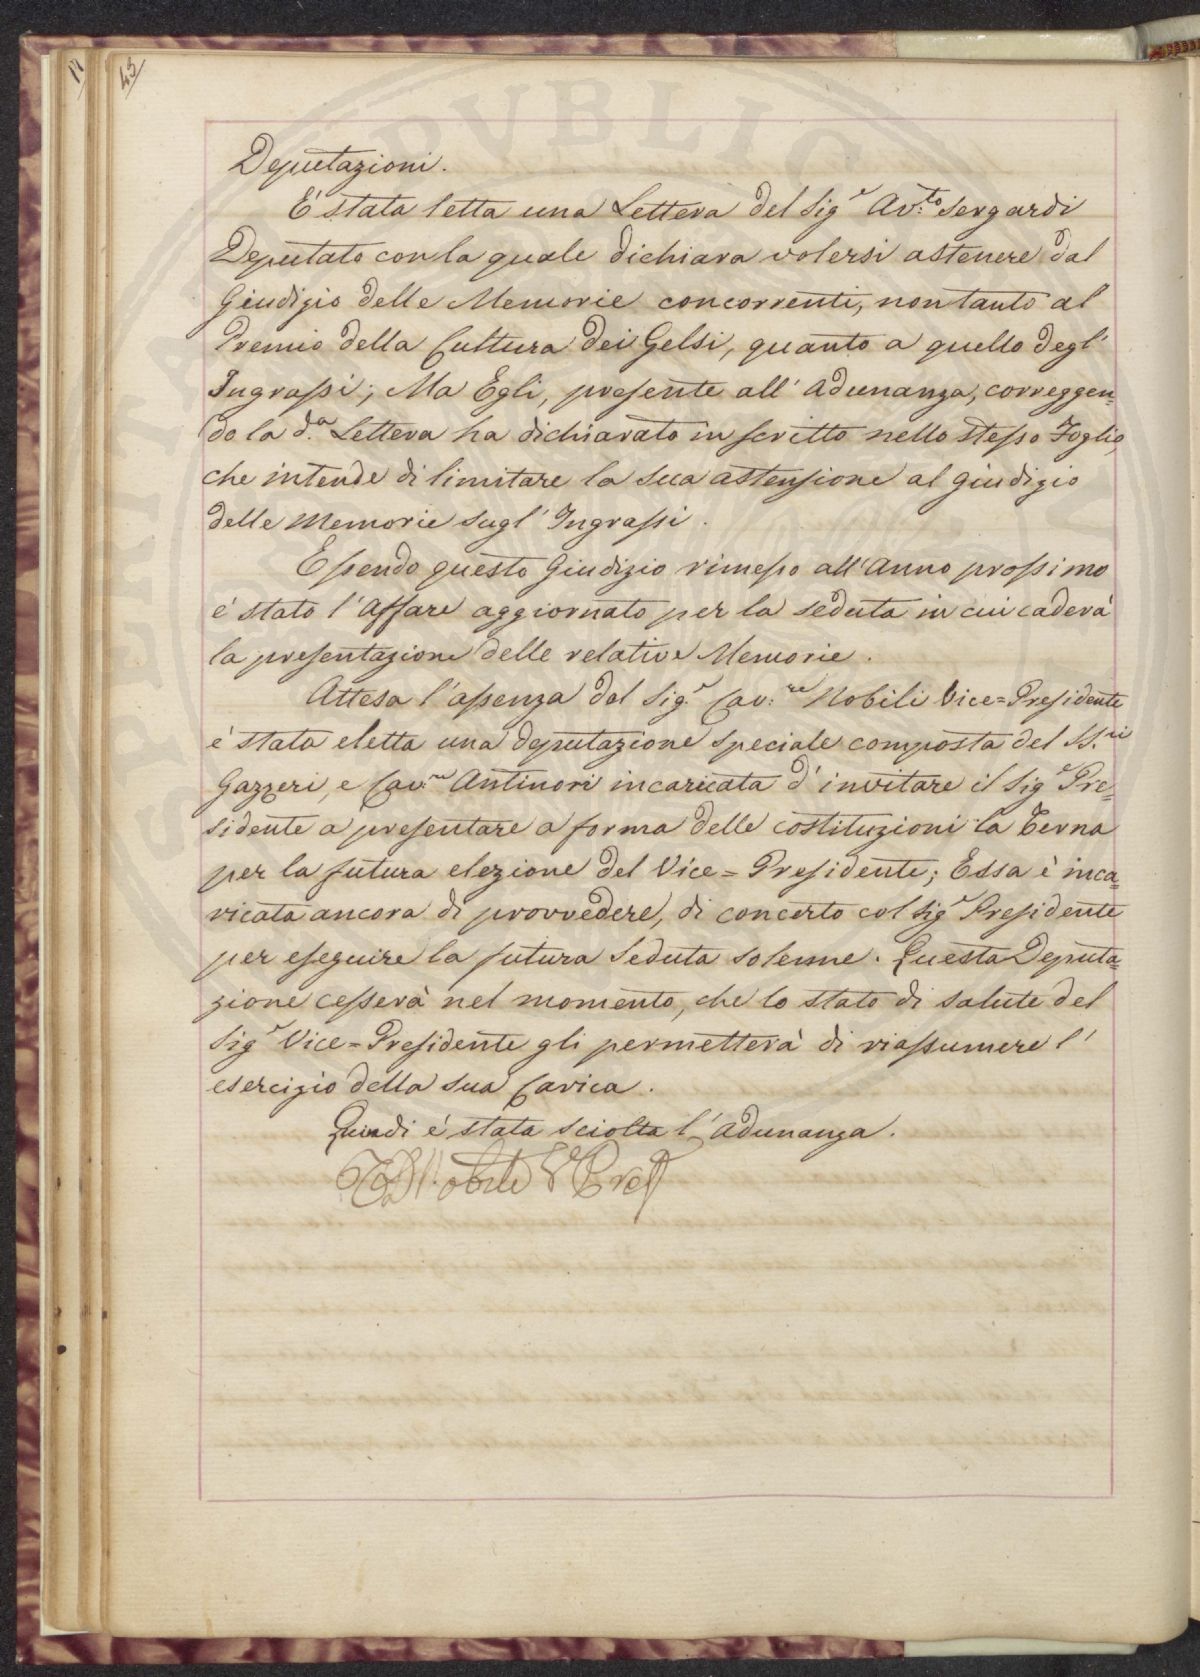 43
Deputazioni.
É stata letta una Lettera del Sig.r Av.to Sergardi
Deputato con la quale dichiara volersi astenere dal
Giudizio delle Memorie concorrenti, non tanto al
Premio della Cultura dei Gelsi, quanto a quello degl'
Ingrassi; Ma Egli, presente all' Adunanza, correggen=
do la d.a Lettera ha dichiarato in scritto nello stesso Foglio,
che intende di limitare la sua astensione al giudizio
delle Memorie sugl' Ingrassi.
Essendo questo Giudizio rimesso all' Anno prossimo
é stato l'Affare aggiornato per la seduta in cui caderà
la presentazione delle relative Memorie.
Attesa l'assenza del Sig.r Cav.re Nobili Vice=Presidente
é stata eletta una deputazione speciale composta del SS.ri
Gazzeri, e Cav.re Antinori incaricata d' invitare il Sig.e Pre=
sidente a presentare a forma delle costituzioni la Terna
per la futura elezione del Vice=Presidente; Essa è inca=
ricata ancora di provvedere, di concerto col Sig.r Presidente
per eseguire la futura Seduta solenne. Questa Deputa=
zione cesserà nel momento, che lo stato di salute del
Sig.r Vice=Presidente gli permetterà di riassumere l'
esercizio della sua Carica.
Quindi é stata sciolta l'Adunanza.
Nobili V.e Pres
PUBLIC